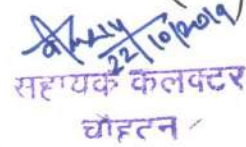 22/10/2019
सहायक कलक्टर
चौहटन